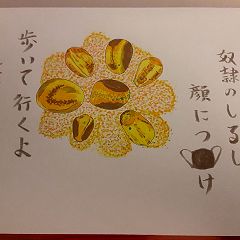 奴隷のしるし
顔につけ
歩いて行くよ